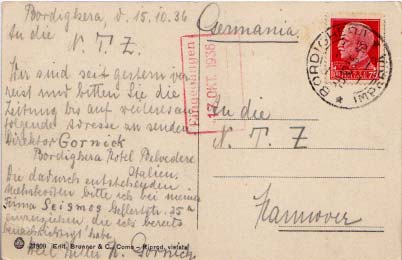 Bordighera, d. 15.10.36
An die
N. T. Z.
Wir sind seit gestern ver
reist und bitten Sie die
Zeitung bis auf weiteres an
folgende Adresse zu senden
Direktor Gornick
Bordighera Hotel Belvedere
Italien.
Die dadurch entstehenden
Mehrkosten bitte ich bei meiner
Firma Seismos 35a
einzuziehen, die ich bereits
benachrichtigt habe.
Heil Hitler Gornick
Germania
Eingegangen
17. OKT. 1936
BORDIGHERA
IMPERIA
An die
N. T. Z
Hannover
Edit. Brunner & C., Como - Riprod. vietata